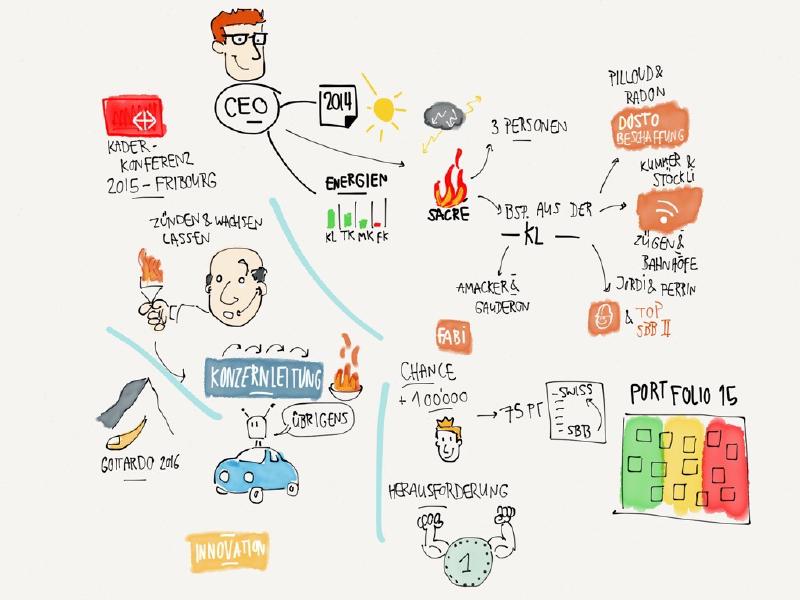 CEO
2014
KADER-
KONFERENZ
2015 - FRIBOURG
ENERGIEN
KL TK MK FK
SACRE
3 PERSONEN
BSP. AUS DER
— KL —
PILLOUD &
RADON
DOSTO
BESCHAFFUNG
KUMMER &
STÖCKLI
ZÜGEN &
BAHNHÖFE
JORDI & PERRIN
& TOP
SBB II
AMACKER &
GAUDERON
ZÜNDEN & WACHSEN
LASSEN
KONZERNLEITUNG
ÜBRIGENS
GOTTARDO 2016
INNOVATION
FABI
CHANCE
+ 100'000
→ 75 PT
- SWISS
- SBB
HERAUSFORDERUNG
1
PORTFOLIO 15